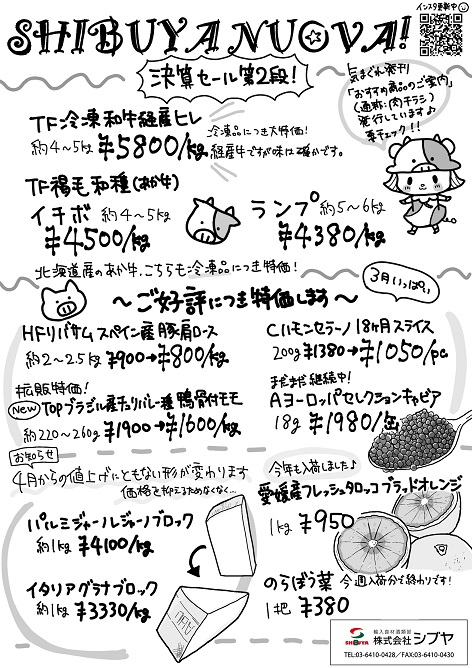 インスタ更新中
SHIBUYA NUOVA!
決算セール第2段!
気まぐれ発刊
「おすすめ商品のご案内」
(通称:肉チラシ)
発行しています♪
要チェック!!
TF冷凍和牛経産ヒレ
約4~5kg ¥5800/kg
冷凍品につき大特価!
経産牛ですが味は確かです。
TF褐毛和種(あか牛)
イチボ 約4~5kg
¥4500/kg
ランプ 約5~6kg
¥4380/kg
北海道産のあか牛、こちらも冷凍品につき特価!
3月いっぱい
~ご好評につき特価します~
HFリバサム スペイン産 豚肩ロース
約2~2.5kg ¥900→¥800/kg
Cハモンセラーノ 18ヶ月スライス
200g ¥1380→¥1050/pc
拡販特価!
New TOPブラジル産チェリバレー種 鴨骨付モモ
約220~260g ¥1900→¥1600/kg
まだまだ継続中!
Aヨーロッパセレクションキャビア
18g ¥1980/缶
お知らせ
4月からの値上げにともない形が変わります
価格を抑えるためなくなく…
パルミジャーノレジャーノブロック
約1kg ¥4100/kg
イタリアグラナブロック
約1kg ¥3330/kg
今年も入荷しました♪
愛媛産フレッシュタロッコブラッドオレンジ
1kg ¥950
のらぼう菜 今週入荷分で終わりです!
1把 ¥380
SHIBUYA
輸入食材酒類卸
株式会社シブヤ
TEL:03-6410-0428/FAX:03-6410-0430